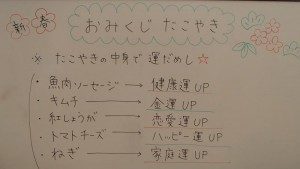 新春
おみくじ たこやき
※ たこやきの中身で運だめし☆
・魚肉ソーセージ → 健康運UP
・キムチ → 金運UP
・紅しょうが → 恋愛運UP
・トマトチーズ → ハッピー運UP
・ねぎ → 家庭運UP